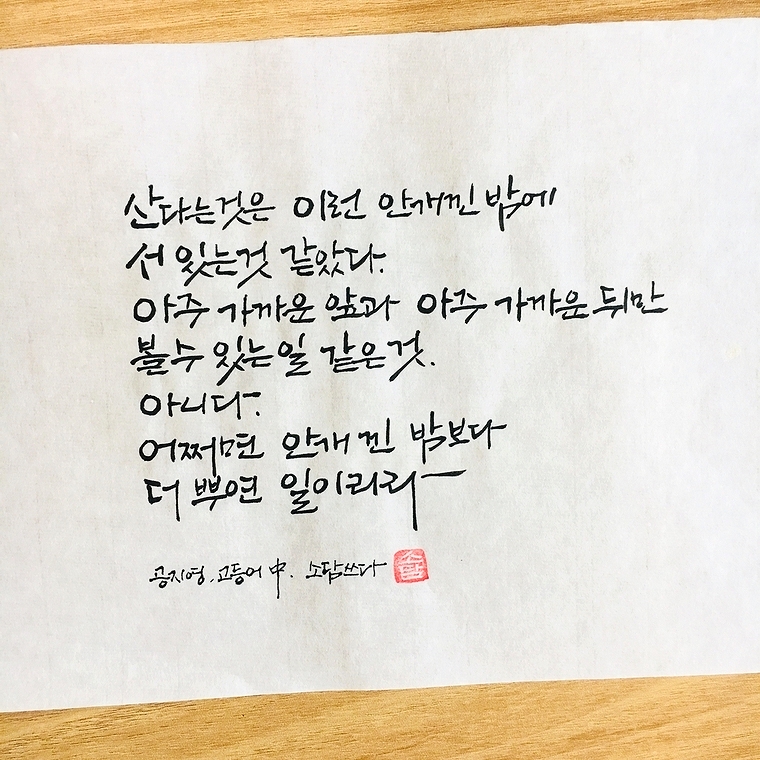 산다는것은 이런 안개낀 밤에
서 있는것 같았다.
아주 가까운 앞과 아주 가까운 뒤만
볼수 있는일 같은것.
아니다.
어쩌면 안개 낀 밤보다
더 뿌연 일이리라
공지영, 고등어 中. 소담쓰다
소담